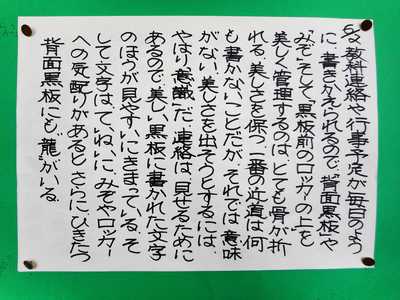 各教科連絡や行事予定が毎日のよう
に、書きかえられるので、背面黒板や
「みぞ」そして、「黒板前のロッカーの上を
美しく管理するのは、とても骨が折
れる。美しさを保つ一番の近道は、何
も書かないことだが、それでは意味
がない。美しさを出そうとするには、
やはり「意識」だ。連絡は、見せるために
あるので、美しい黒板に書かれた文字
のほうが見やすいにきまっている。そ
して文字は、ていねいに、みぞやロッカー
への気配りがあるとさらに、ひきたつ。
背面黒板にも「龍」がいる。